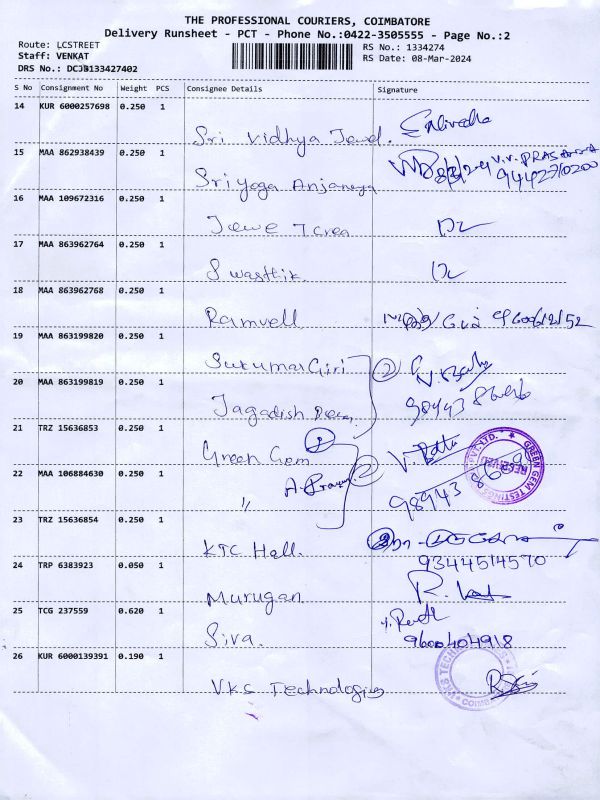 THE PROFESSIONAL COURIERS, COIMBATORE
Delivery Runsheet - PCT - Phone No.:0422-3505555 - Page No.:2
Route: LCSTREET
Staff: VENKAT
DRS No.: DCJB133427402
RS No.: 1334274
RS Date: 08-Mar-2024
S No Consignment No Weight PCS Consignee Details Signature
14 KUR 6000257698 0.250 1
Sri Vidhya Jewel.
15 MAA 862938439 0.250 1
Sri yoga Anjaneya
16 MAA 109672316 0.250 1
Jewe 7 Crea
17 MAA 863962764 0.250 1
Swasttik
18 MAA 863962768 0.250 1
Ramvell
19 MAA 863199820 0.250 1
Sukumar Giri (2)
20 MAA 863199819 0.250 1
Jagadish
21 TRZ 15636853 0.250 1
Green Gem
GREEN GEM TESTING
22 MAA 106884630 0.250 1
"
98943
23 TRZ 15636854 0.250 1
KTC Hall.
9344514570
24 TRP 6383923 0.050 1
Murugan
25 TCG 237559 0.620 1
Siva.
9600404918
26 KUR 6000139391 0.190 1
VKS Technologies
VKS TECH